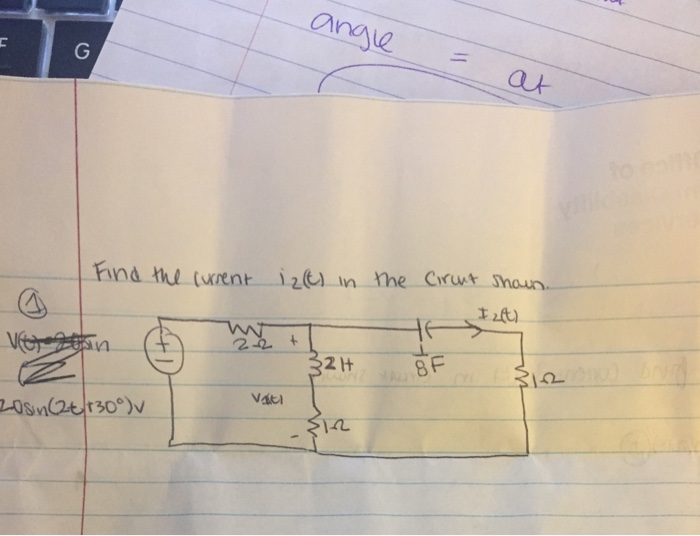 F
G
angle = at
Find the current i2(t) in the circut shown.
1
20sin(2t+30°)v
+
-
2Ω
+
2H
1/8F
I2(t)
1Ω
-
1Ω